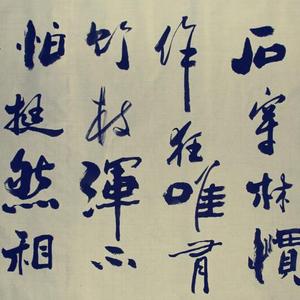 石穿林慣
作狂唯有
竹枝渾不
怕挺然相